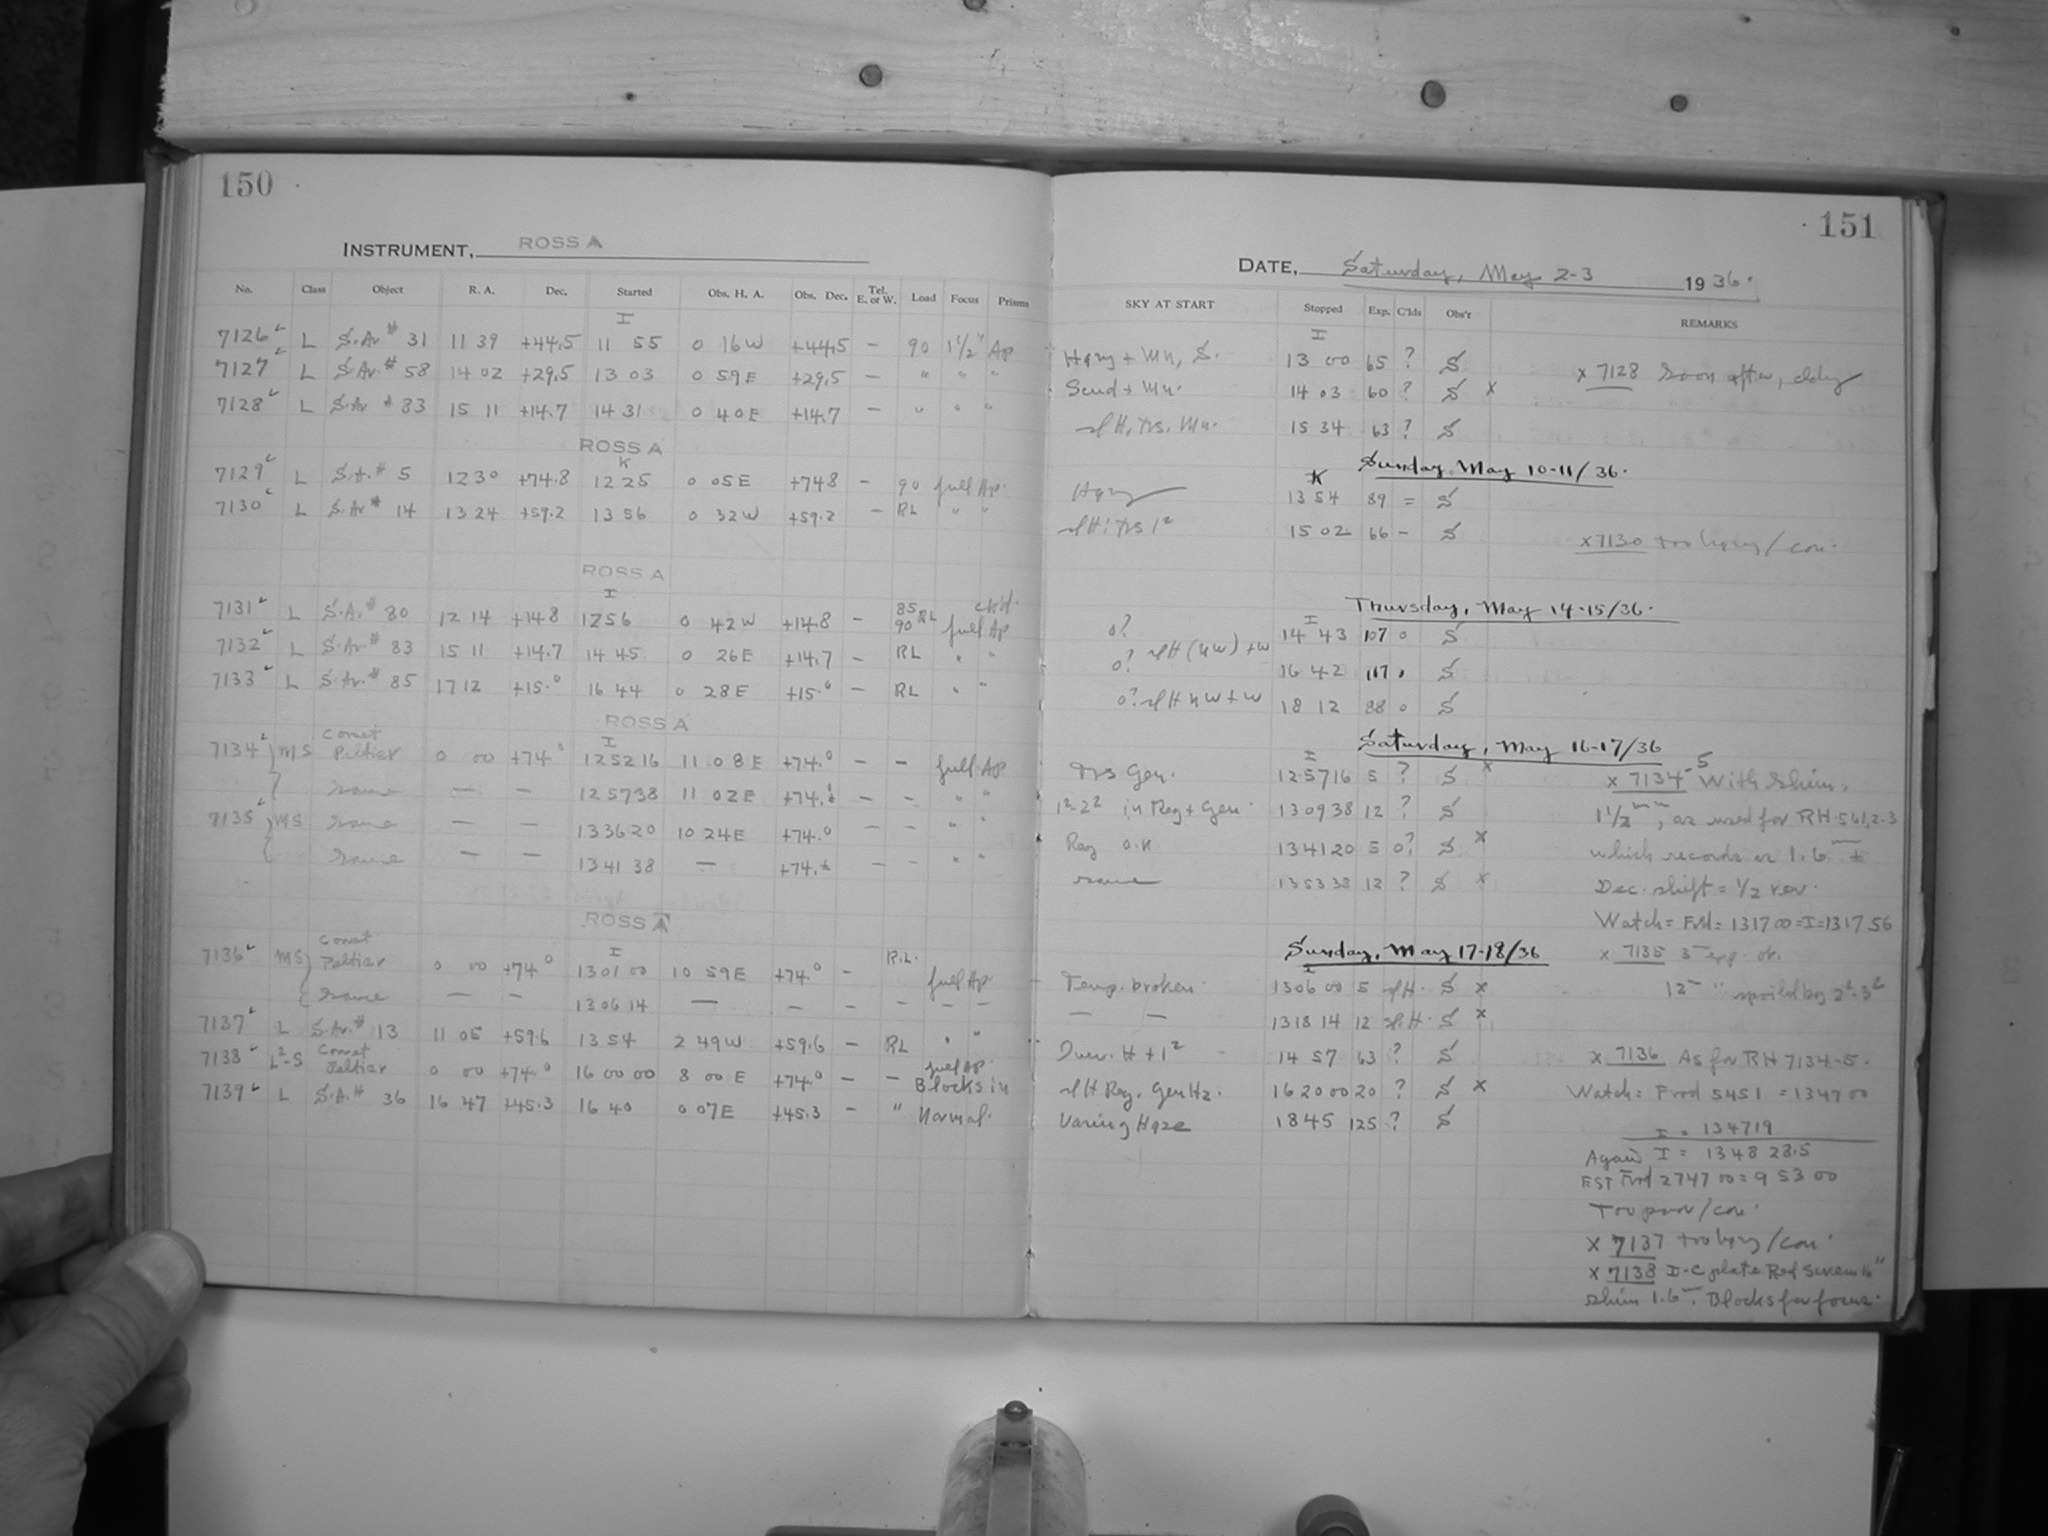 150
INSTRUMENT, ROSS A
No. Class Object R. A. Dec. Started Obs. H. A. Obs. Dec. Tel. E. or W. Load Focus Prisms
I
7126 L S.Ar # 31 11 39 +44.5 11 55 0 16 W +44.5 - 90 1 1/2" Ap
7127 L S.Ar. # 58 14 02 +29.5 13 03 0 59 E +29.5 - " " "
7128 L S.Ar # 83 15 11 +14.7 14 31 0 40 E +14.7 - " " "
ROSS A
K
7129 L S.A. # 5 12 30 +74.8 12 25 0 05 E +74.8 - 90 full Ap.
7130 L S.Ar # 14 13 24 +59.2 13 56 0 32 W +59.2 - RL " "
ROSS A
I
7131 L S.A. # 80 12 14 +14.8 12 56 0 42 W +14.8 - 85 90 RL full Ap
7132 L S.Ar # 83 15 11 +14.7 14 45 0 26 E +14.7 - RL " "
7133 L S.Ar. # 85 17 12 +15.0 16 44 0 28 E +15.0 - RL " "
ROSS A
I
7134 MS Comet Peltier 0 00 +74.0 12 52 16 11 08 E +74.0 - - full Ap
same — — 12 57 38 11 02 E +74. - - " "
7135 MS same — — 13 36 20 10 24 E +74.0 - - " "
same — — 13 41 38 — +74. - - " "
ROSS A
I
7136 MS Comet Peltier 0 00 +74.0 13 01 00 10 59 E +74.0 - R.L. full Ap
same — — 13 06 14 — — - - - -
7137 L S.Ar. # 13 11 05 +59.6 13 54 2 49 W +59.6 - RL " "
7138 L2-S Comet Peltier 0 00 +74.0 16 00 00 8 00 E +74.0 - - full Ap Blocks in
7139 L S.A. # 36 16 47 +45.3 16 40 0 07 E +45.3 - " Normal.
151
DATE, Saturday, May 2-3 1936.
SKY AT START Stopped Exp. C'lds Obs'r REMARKS
I
Hazy + Mn, S. 13 00 65 ? S
x 7128 Soon after, cldy
Scud + Mn. 14 03 60 ? S x
sl H, Trs. Mn. 15 34 63 ? S
Sunday May 10-11/36.
K
Hazy 13 54 89 = S
sl H; Trs 1² 15 02 66 - S
x 7130 too hazy / con.
Thursday, May 14-15/36.
I
0? 14 43 107 0 S
0? sl H (NW) + W 16 42 117 0 S
0? sl H NW + W 18 12 88 0 S
Saturday, May 16-17/36
I
Trs Gen. 12 57 16 5 ? S x
x 7134-5 With Shim,
1²-2² in Reg + Gen. 13 09 38 12 ? S
1 1/2 mm, as used for RH 561, 2-3
Reg O.K 13 41 20 5 0? S x
which records as 1.6 mm ±
same 13 53 38 12 ? S x
Dec. shift = 1/2 rev.
Watch = Frd = 13 17 00 = I = 13 17 56
Sunday, May 17-18/36
x 7135 5m exp. ok.
I
Temp. broken. 13 06 00 5 sl H. S x
12m " spoiled by 2²-3²
— — 13 18 14 12 sl. H. S x
H + 1² 14 57 63 ? S
x 7136 As for RH 7134-5.
sl H Reg. Gen Hz. 16 20 00 20 ? S x
Watch: Frod 5451 = 13 47 00
Varing Haze 18 45 125 ? S
I = 13 47 19
Again I = 13 48 28.5
EST Frd 27 47 00 = 9 53 00
Too poor / con.
x 7137 too hazy / con.
x 7138 I-C plate Red Screen 16"
Shim 1.6 mm. Blocks for focus.